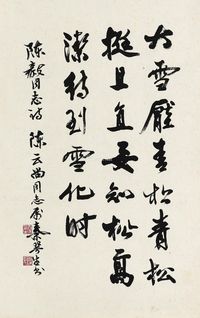 大雪壓青松青松
挺且直要知松高
潔待到雪化时
陈毅同志诗 陈云同志属 秦咢生书